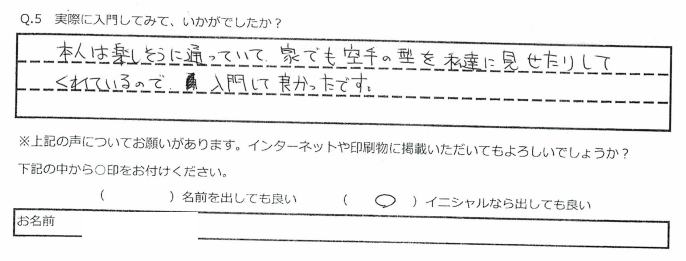 Q.5 実際に入門してみて、いかがでしたか？
本人は楽しそうに通っていて、家でも空手の型を私達に見せたりして
くれているので、入門して良かったです。
※上記の声についてお願いがあります。インターネットや印刷物に掲載いただいてもよろしいでしょうか？
下記の中から○印をお付けください。
（　　　）名前を出しても良い　　（　○　）イニシャルなら出しても良い
お名前